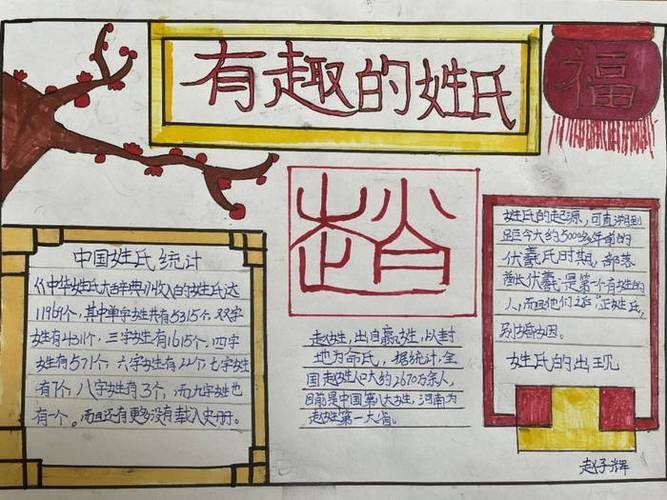 有趣的姓氏
福
中国姓氏统计
《中华姓氏大辞典》收入的姓氏达
11969个,其中单字姓共有5315个.双字
姓有4311个,三字姓有1615个.四字
姓有571个,六字姓有22个,七字姓
有7个,八字姓有3个,而九字姓也
有一个。而且还有更多没有载入史册。
趙
赵姓,出自嬴姓,以封
地为命氏,据统计,全
国赵姓人口大约2670万余人,
目前是中国第八大姓,河南为
赵姓第一大省。
姓氏的起源,可直溯到
距今大约5000多年前的
伏羲氏时期,部落
酋长伏羲是第一个有姓的
人,而且他们之后"正姓氏,
别婚姻。
姓氏的出现
赵子辉